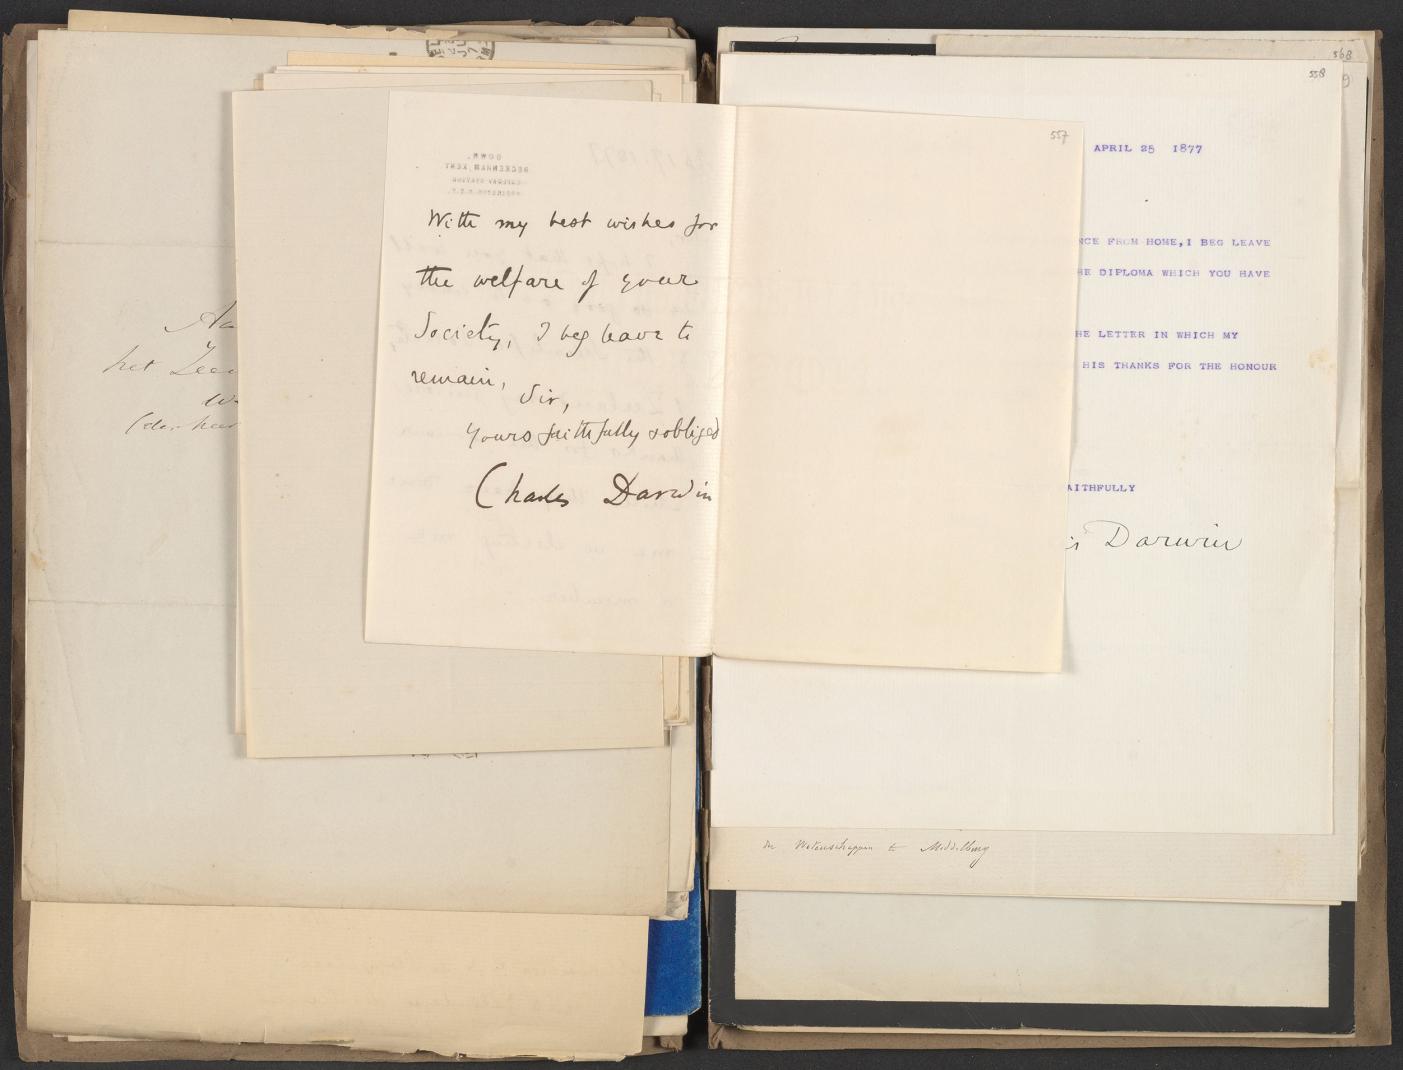 557
With my best wishes for
the welfare of your
Society, I beg leave to
remain,
Sir,
Yours faithfully & obliged
Charles Darwin
568
558
APRIL 25 1877
NCE FROM HOME, I BEG LEAVE
HE DIPLOMA WHICH YOU HAVE
HE LETTER IN WHICH MY
HIS THANKS FOR THE HONOUR
AITHFULLY
is Darwin
het Zee
der Wetenschappen te Middelburg
DOWN.
BECKENHAM, KENT